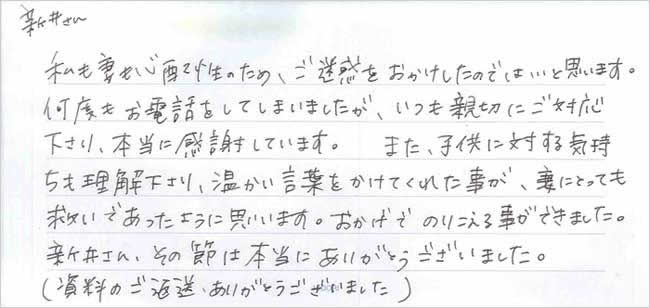 新井さん
私も妻も心配性のため、ご迷惑をおかけしたのでは…と思います。
何度もお電話をしてしまいましたが、いつも親切にご対応
下さり、本当に感謝しています。 また、子供に対する気持
ちも理解下さり、温かい言葉をかけてくれた事が、妻にとっても
救いであったように思いいます。おかげでのりこえる事ができました。
新井さん、その節は本当にありがとうございました。
(資料のご返送、ありがとうございました)